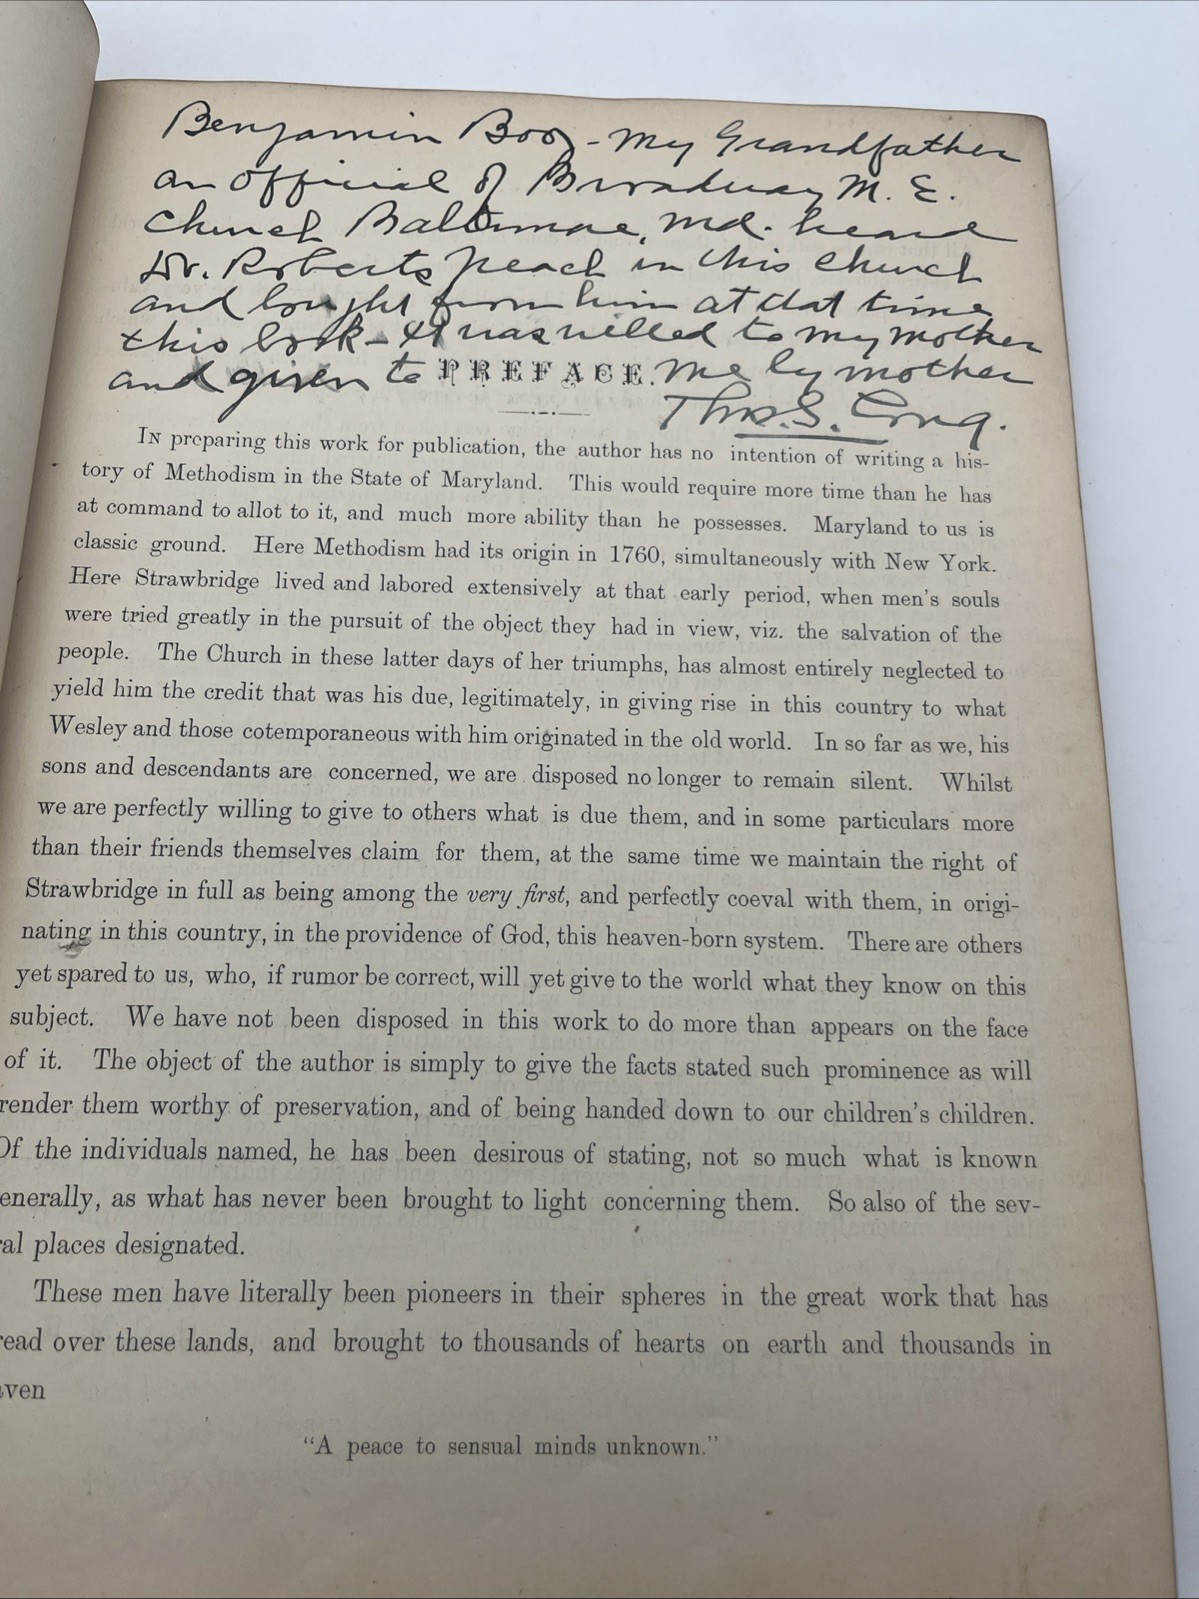 Benjamin Boo - My Grandfather
an official of Broadway M. E.
Church Baltimore, Md. heard
Dr. Roberts preach in this Church
and bought from him at that time
this book - It was willed to my mother
and given to PREFACE. me by mother
Thos. S.
IN preparing this work for publication, the author has no intention of writing a his-
tory of Methodism in the State of Maryland. This would require more time than he has
at command to allot to it, and much more ability than he possesses. Maryland to us is
classic ground. Here Methodism had its origin in 1760, simultaneously with New York.
Here Strawbridge lived and labored extensively at that early period, when men's souls
were tried greatly in the pursuit of the object they had in view, viz. the salvation of the
people. The Church in these latter days of her triumphs, has almost entirely neglected to
yield him the credit that was his due, legitimately, in giving rise in this country to what
Wesley and those cotemporaneous with him originated in the old world. In so far as we, his
sons and descendants are concerned, we are disposed no longer to remain silent. Whilst
we are perfectly willing to give to others what is due them, and in some particulars more
than their friends themselves claim for them, at the same time we maintain the right of
Strawbridge in full as being among the very first, and perfectly coeval with them, in origi-
nating in this country, in the providence of God, this heaven-born system. There are others
yet spared to us, who, if rumor be correct, will yet give to the world what they know on this
subject. We have not been disposed in this work to do more than appears on the face
of it. The object of the author is simply to give the facts stated such prominence as will
render them worthy of preservation, and of being handed down to our children's children.
Of the individuals named, he has been desirous of stating, not so much what is known
enerally, as what has never been brought to light concerning them. So also of the sev-
ral places designated.
These men have literally been pioneers in their spheres in the great work that has
read over these lands, and brought to thousands of hearts on earth and thousands in
aven
"A peace to sensual minds unknown."